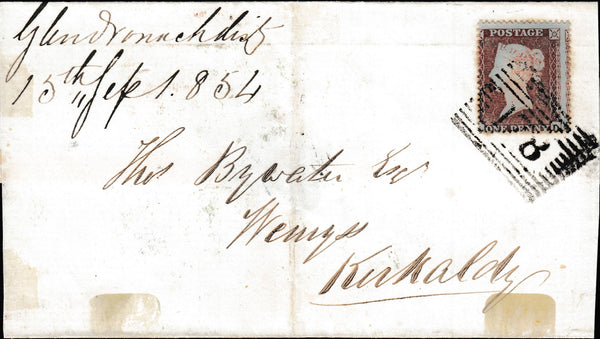 Glendronach dist
15th Sep 1854
POSTAGE
ONE PENNY
8
Thos Bywater Esq
Wemyss
Kirkaldy